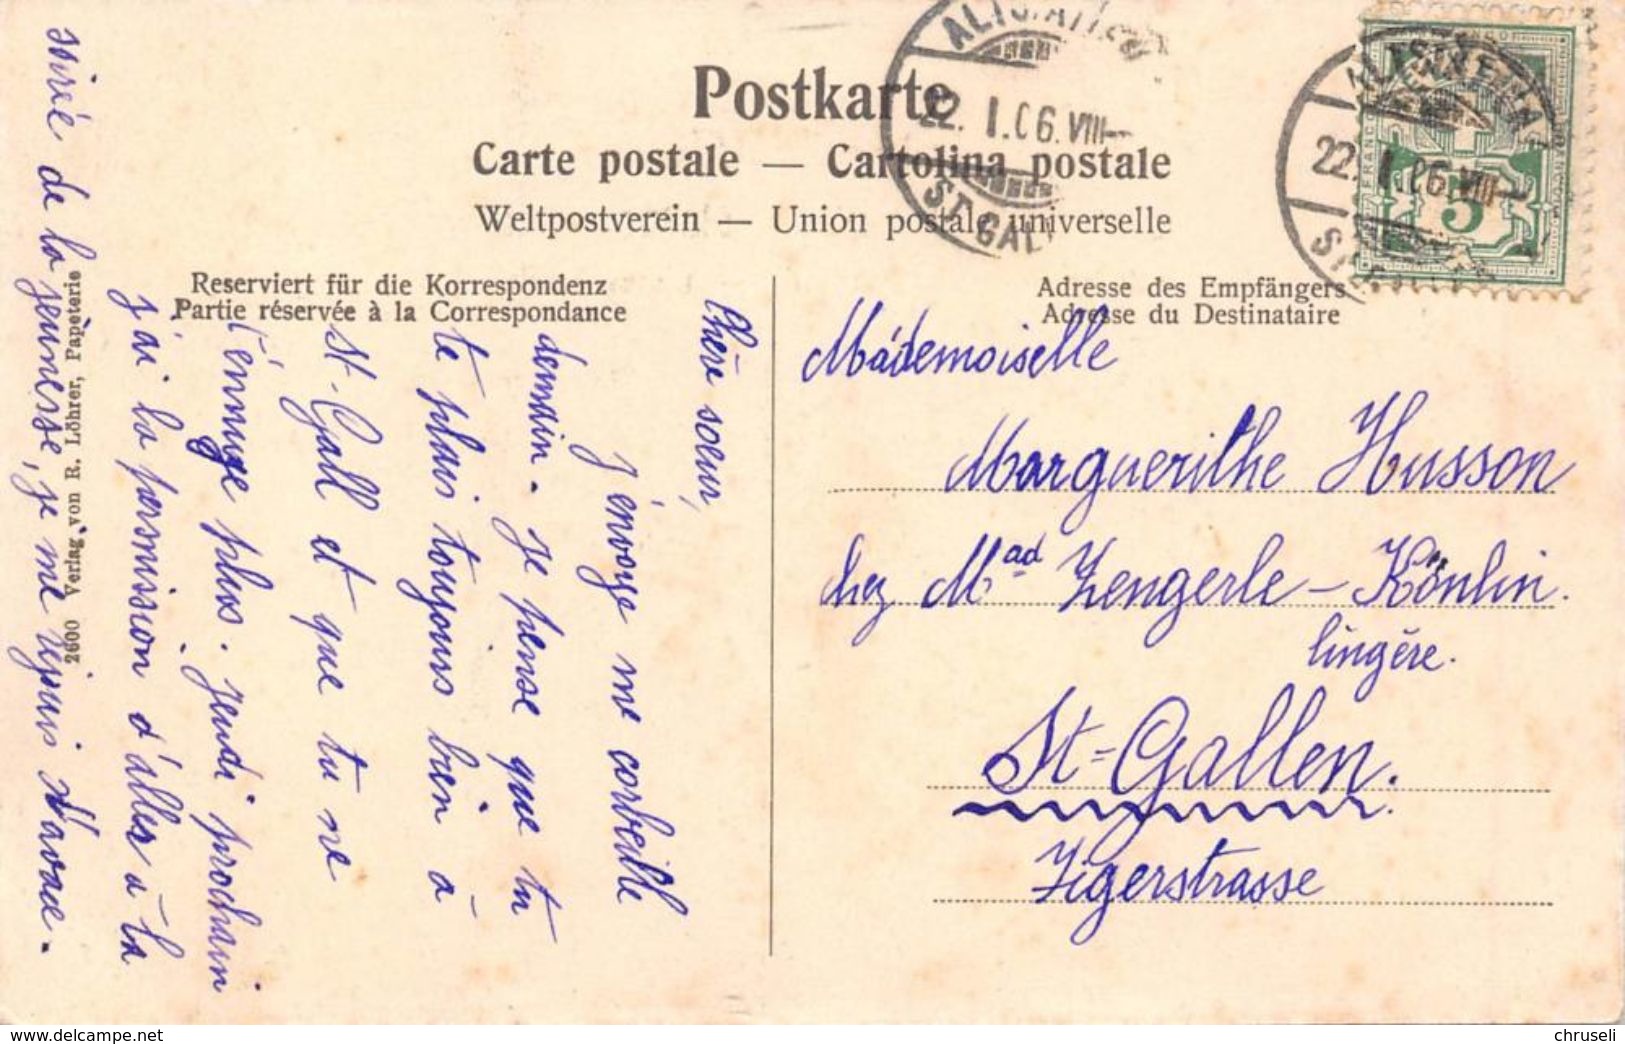 Postkarte
Carte postale — Cartolina postale
Weltpostverein — Union postale universelle
Reserviert für die Korrespondenz
Partie réservée à la Correspondance
Adresse des Empfängers
Adresse du Destinataire
22. I.06.VIII—
ST. GALL
22. I.06.VIII—
FRANCO
5
Chère soeur,
J'envoye me corbeille
demain. Je pense que tu
te plais toujours bien à
St-Gall et que tu ne
t'énnuye plus. Jeudi prochain
j'ai la permission d'aller à la
soiré de la jeunesse, je me rejouis d'avance.
2600 Verlag von R. Löhrer, Papeterie
Mademoiselle
Marguerithe Husson
chez Mad Zengerle-Könlin.
lingère.
St-Gallen.
Zigerstrasse
chruseli